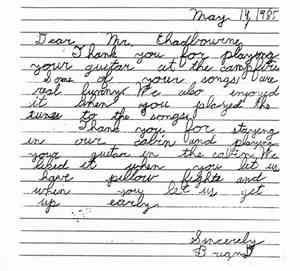 May 14, 1985
Dear Mr. Chadbourne
Thank you for playing
your guitar at the campfire
Some of your songs are
real funny. We also enjoyed
it when you played the
tunes to the songs.
Thank you for staying
in our cabin and playing
your guitar in the cabin. We
liked it when you let us
have pillow fights and
when you let us get
up early.
Sincerely
Brian